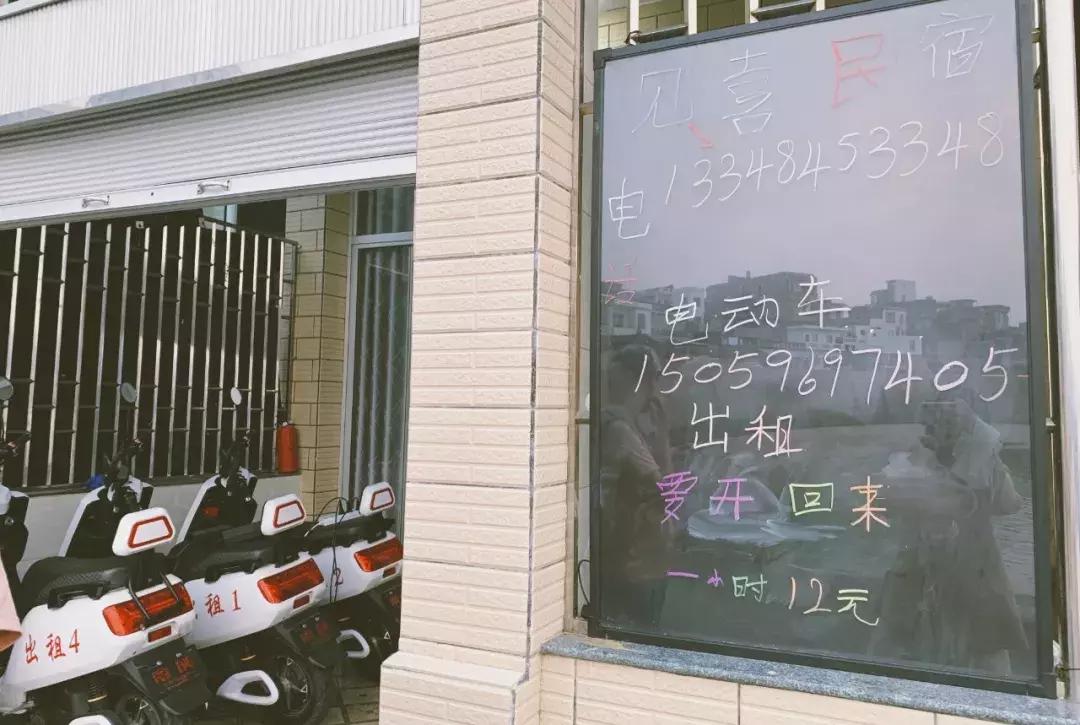 见喜民宿
电话 13348453348
电动车
15059697405
出租
要开回来
一小时12元
出租4
租1
2